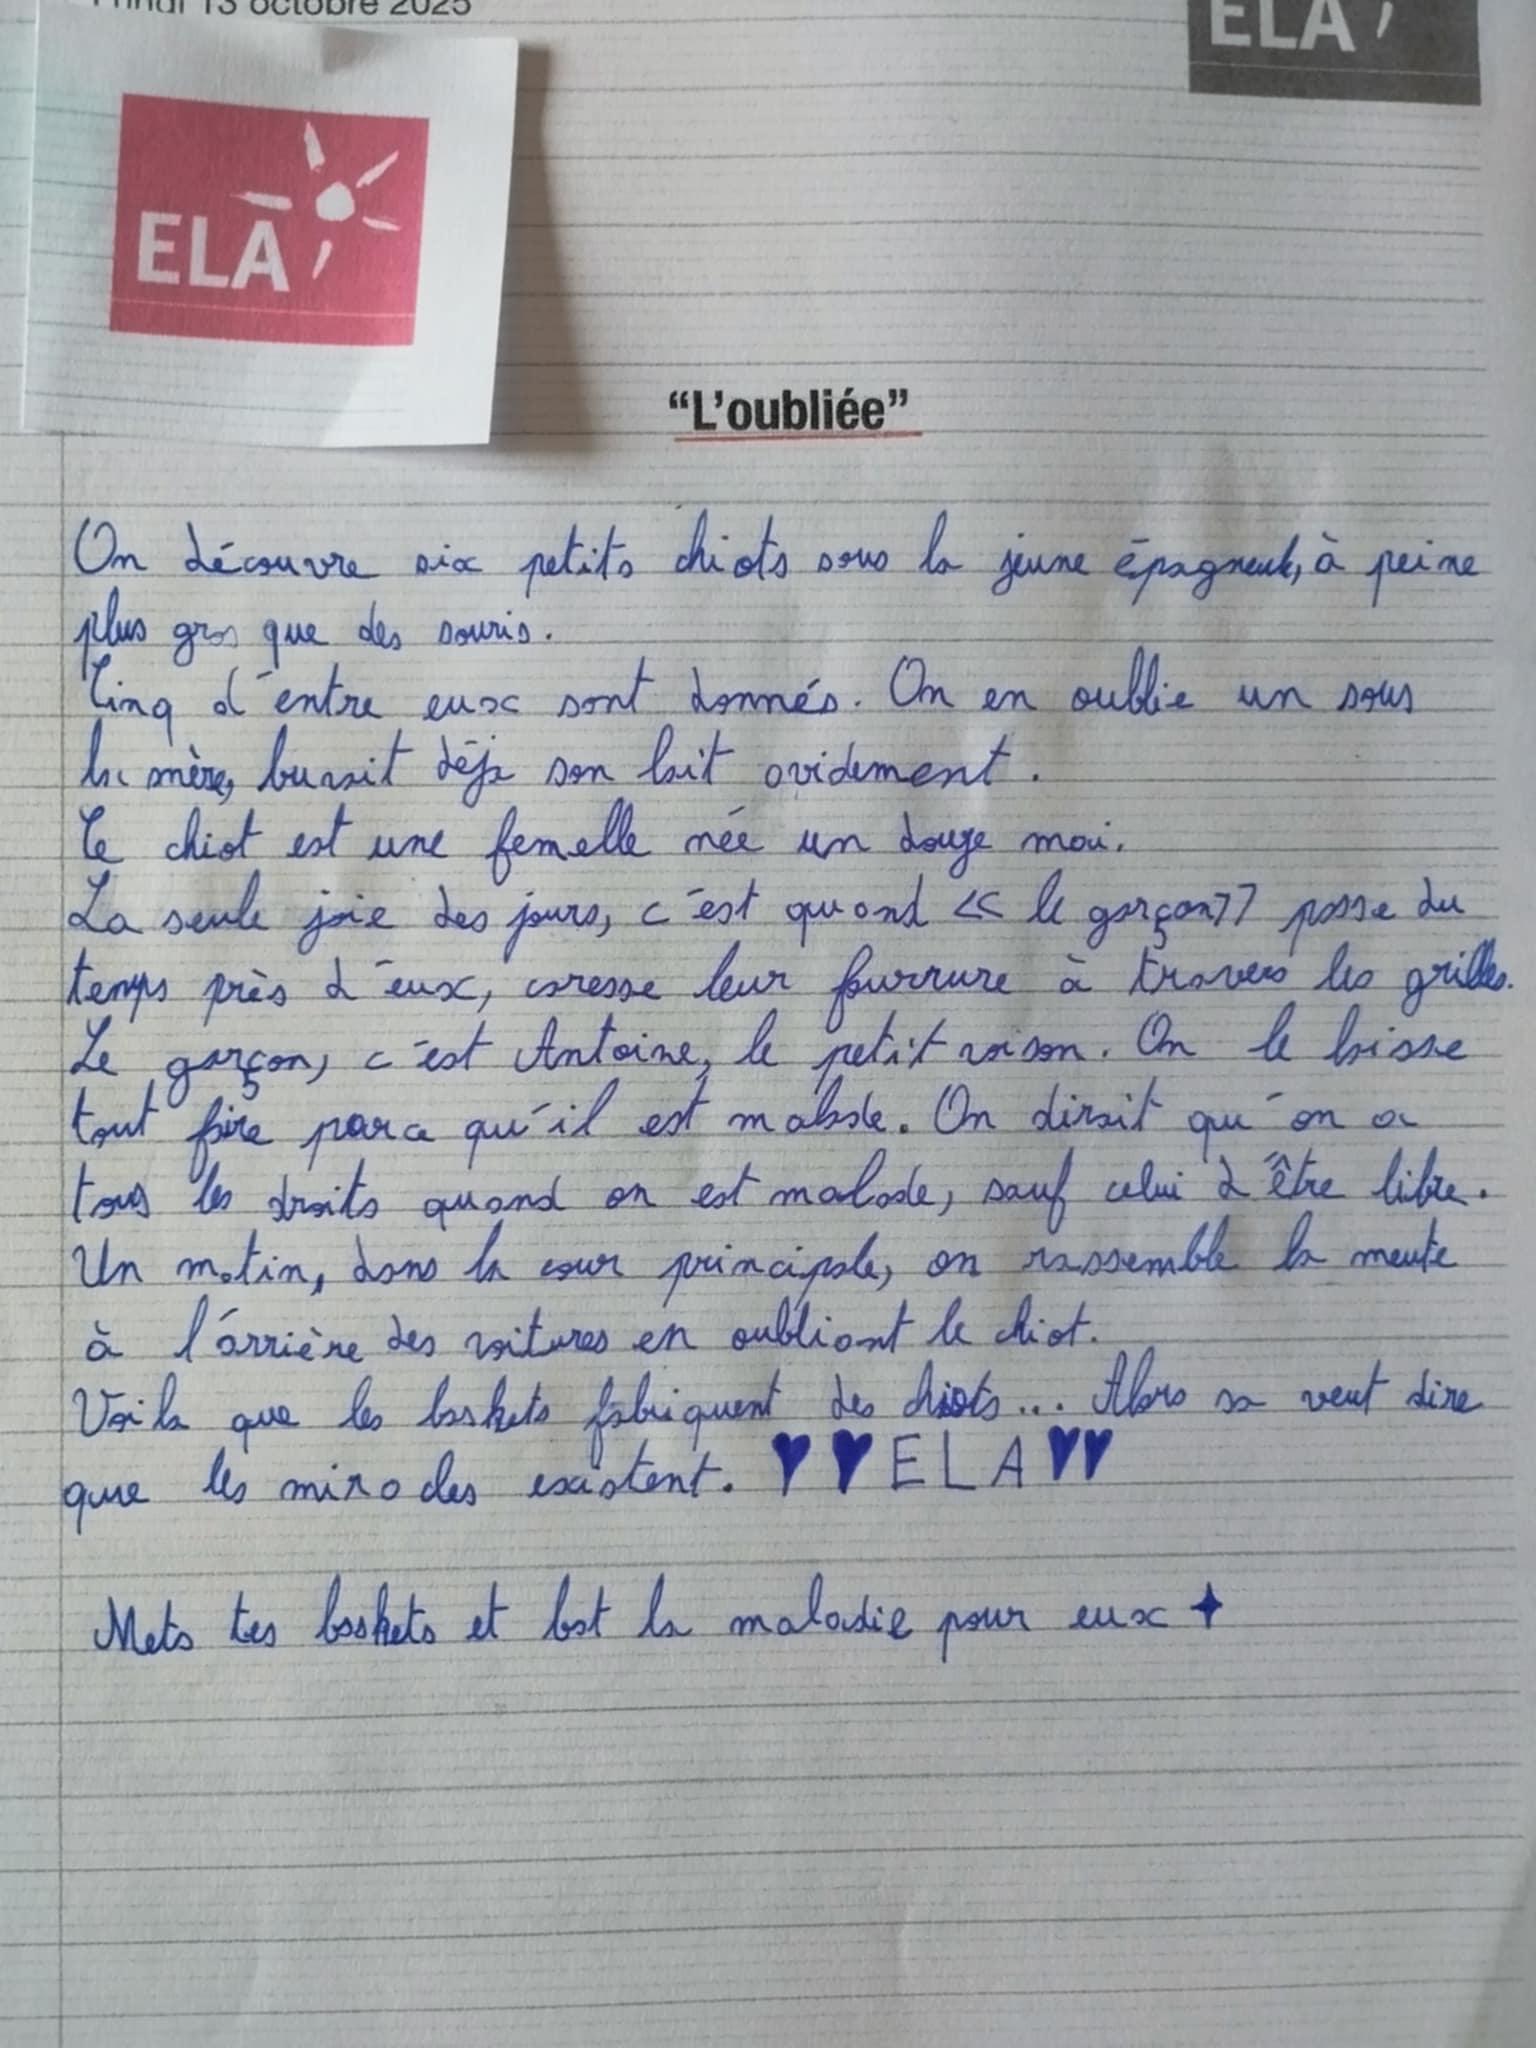 Lundi 13 octobre 2025
ELA
ELA
“L’oubliée”
On découvre six petits chiots sous la jeune épagneule, à peine
plus gros que des souris.
Cinq d'entre eux sont donnés. On en oublie un sous
la mère, buvait déjà son lait avidement.
Ce chiot est une femelle née un douze mai.
La seule joie des jours, c'est quand << le garçon>> passe du
temps près d'eux, caresse leur fourrure à travers les grilles.
Le garçon, c'est Antoine, le petit voison. On le laisse
tout faire parce qu'il est malade. On dirait qu'on a
tous les droits quand on est malade, sauf celui d'être libre.
Un matin, dans la cour principale, on rassemble la meute
à l'arrière des voitures en oubliant le chiot.
Voila que les baskets fabriquent des chiots... Alors sa veut dire
que les miracles existent. ♥♥ELA♥♥
Mets tes baskets et bat la maladie pour eux ✦